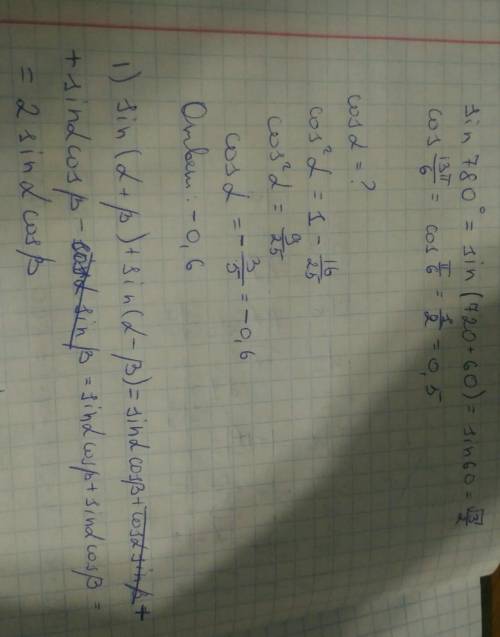 sin 780° = sin (720+60) = sin 60 = √3/2
cos 13π/6 = cos π/6 = 1/2 = 0,5
cos α = ?
cos² α = 1 - 16/25
cos² α = 9/25
cos α = - 3/5 = -0,6
Ответ: -0,6
1) sin(α+β) + sin(α-β) = sinα cosβ + cosα sinβ +
+ sinα cosβ - cosα sinβ = sinα cosβ + sinα cosβ =
= 2 sinα cosβ